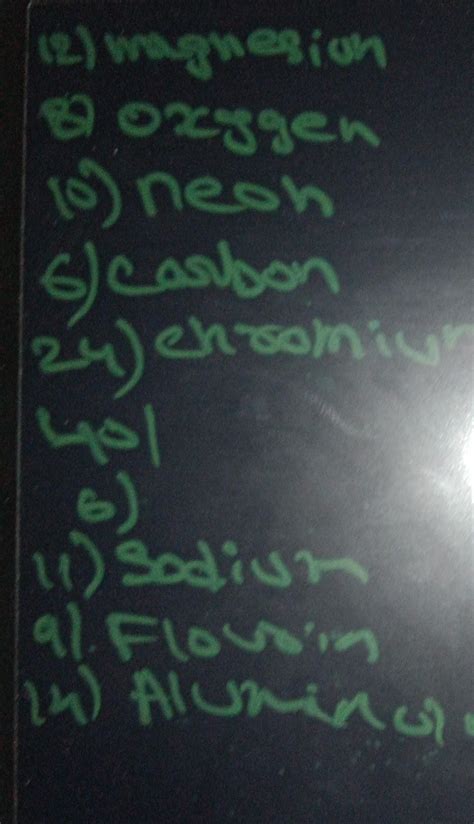 12) magnesium
8) oxygen
10) neon
6) carbon
24) chromium
40)
6)
11) Sodium
9). Flourin
14) Aluminu